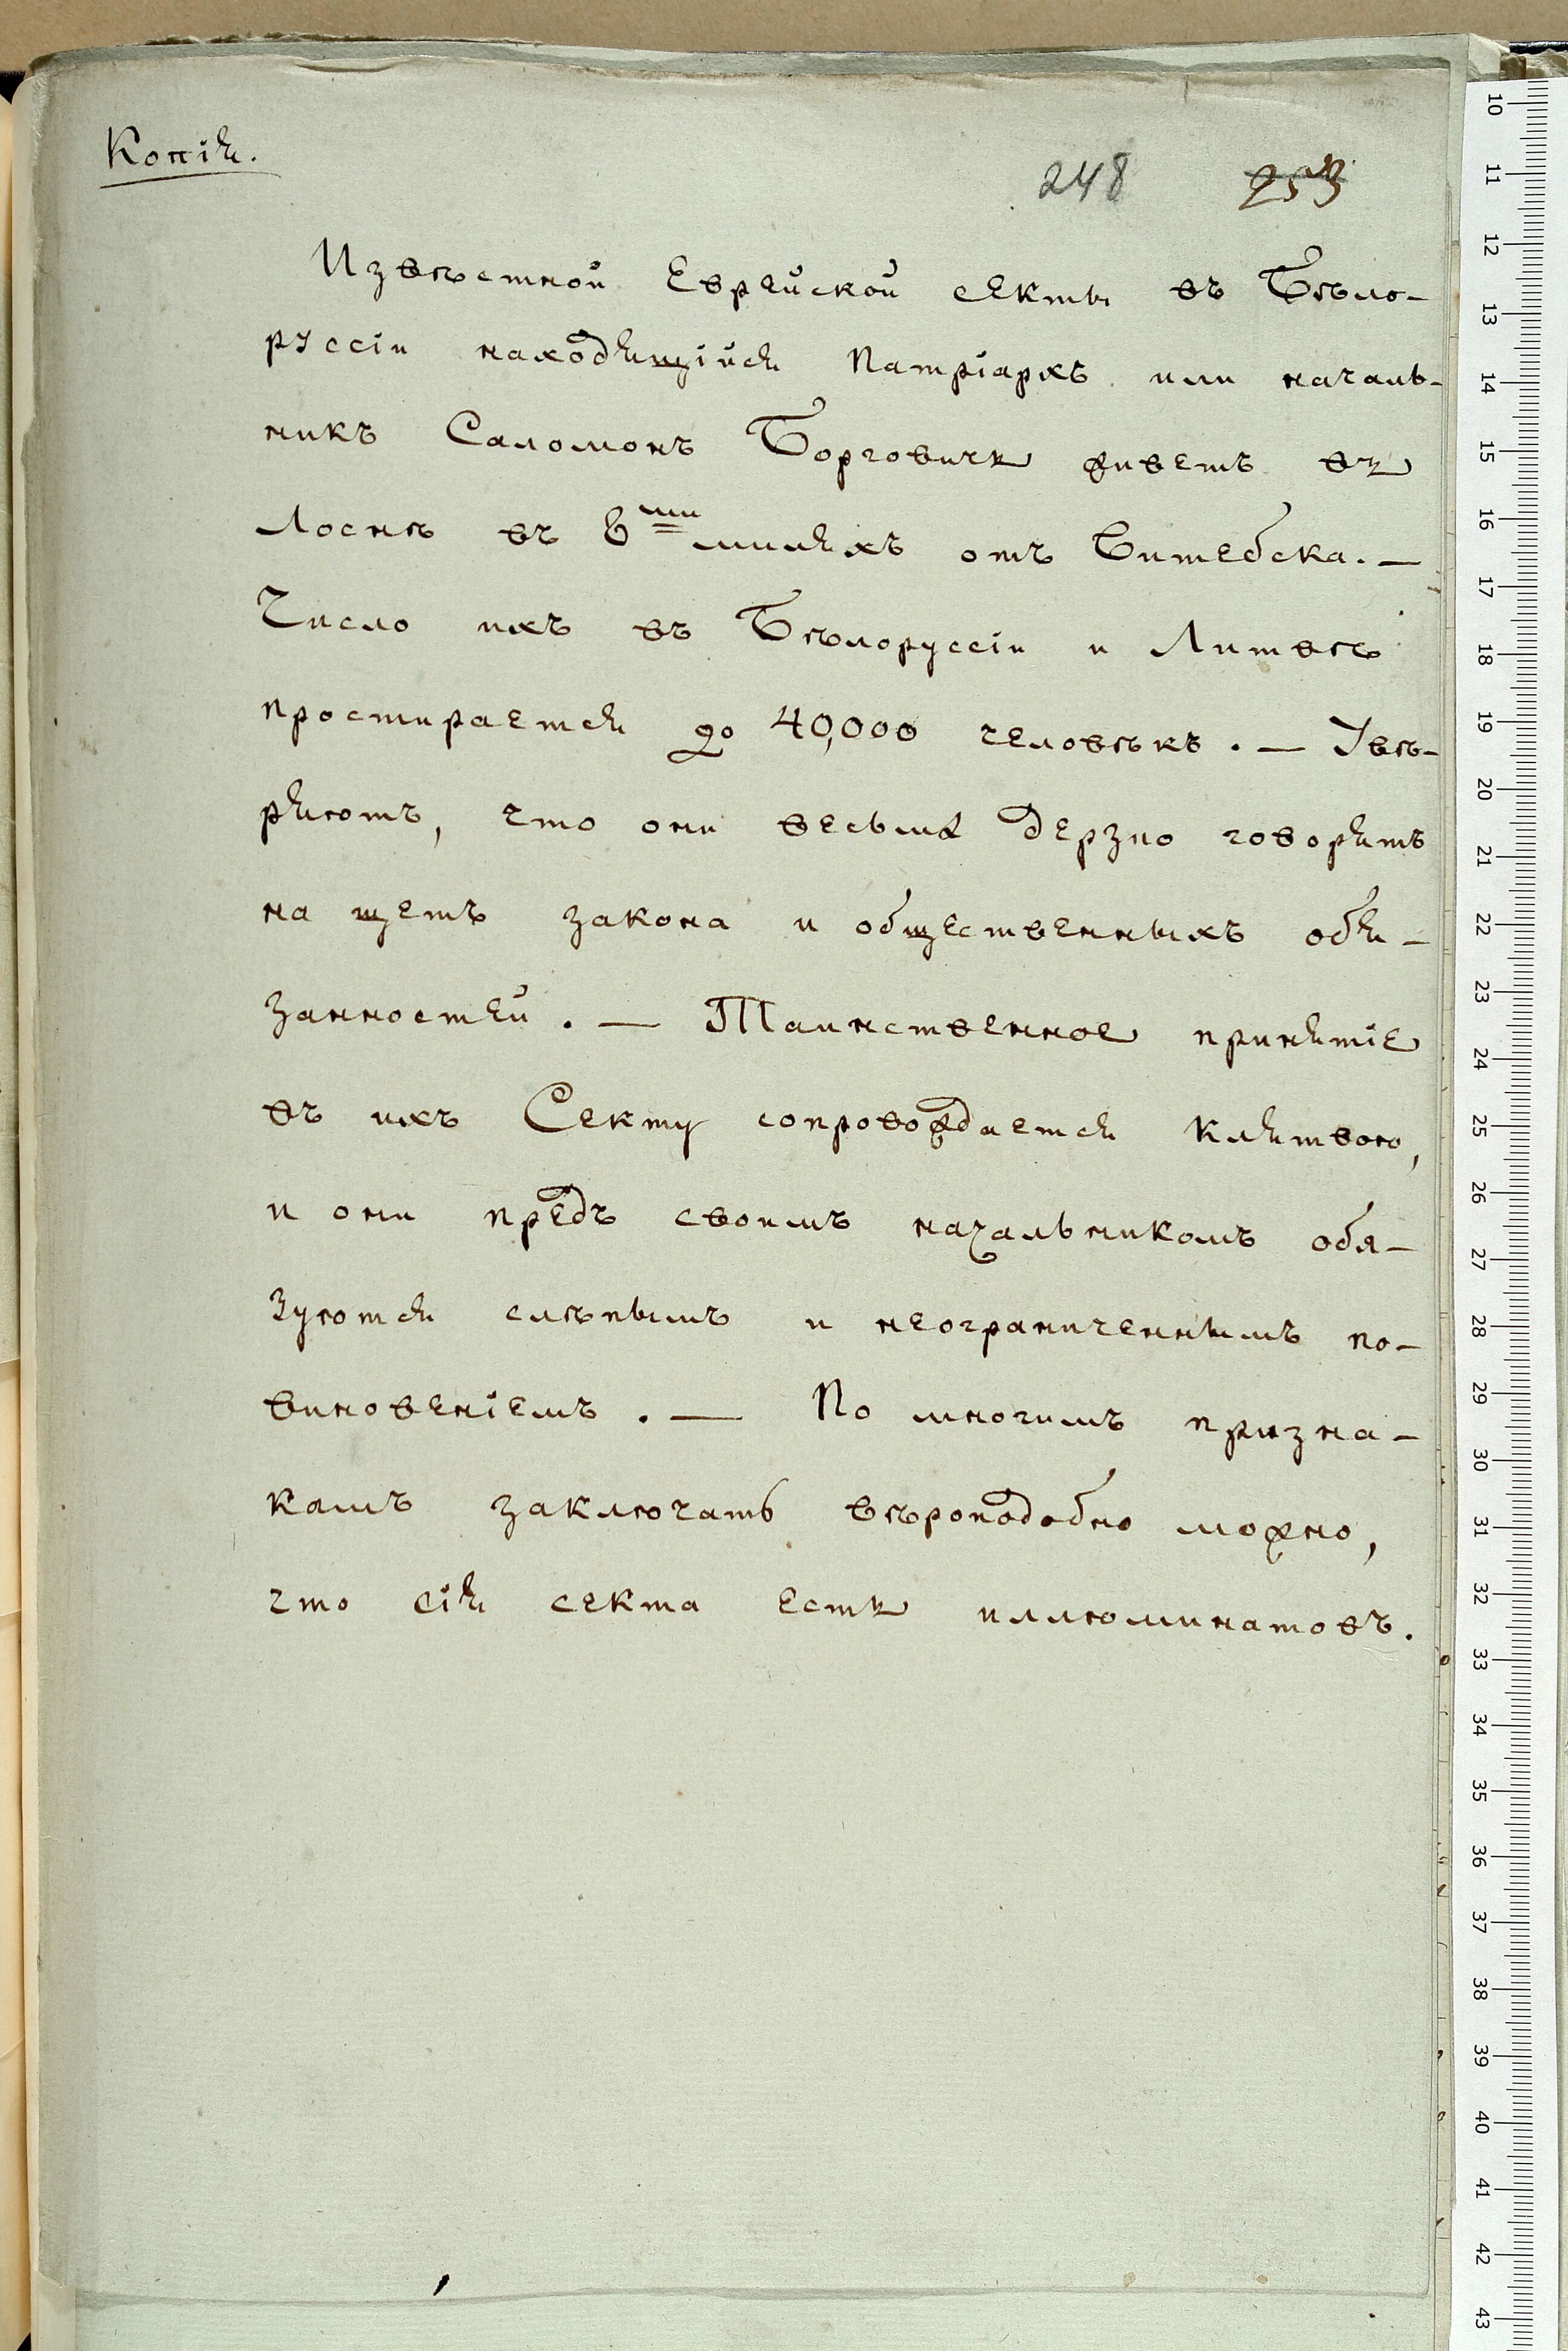 Копія.
248 253
Извѣстной Еврейской секты въ Бѣло-
руссіи находящійся Патріархъ или началь-
никъ Саломонъ Борговичь живетъ въ
Лоснѣ въ 6ти миляхъ отъ Витебска. —
Число ихъ въ Бѣлоруссіи и Литвѣ
простирается до 40,000 человѣкъ. — Увѣ-
ряютъ, что они весьма дерзко говорятъ
на щетъ закона и общественныхъ обя-
занностей. — Таинственное принятіе
въ ихъ Секту сопровождается клятвою,
и они предъ своимъ начальникомъ обя-
зуются слѣпымъ и неограниченнымъ по-
виновеніемъ. — По многимъ призна-
камъ заключать вѣроподобно можно,
что сія секта есть иллюминатовъ.
10
11
12
13
14
15
16
17
18
19
20
21
22
23
24
25
26
27
28
29
30
31
32
33
34
35
36
37
38
39
40
41
42
43